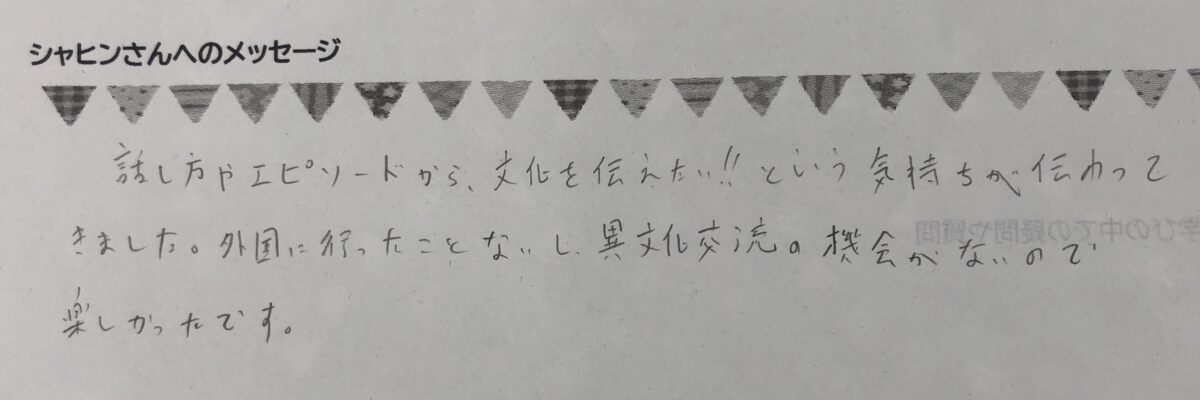 シャヒンさんへのメッセージ
話し方やエピソードから、文化を伝えたい!!という気持ちが伝わって
きました。外国に行ったことないし、異文化交流の機会がないので
楽しかったです。
学びの中での疑問や質問